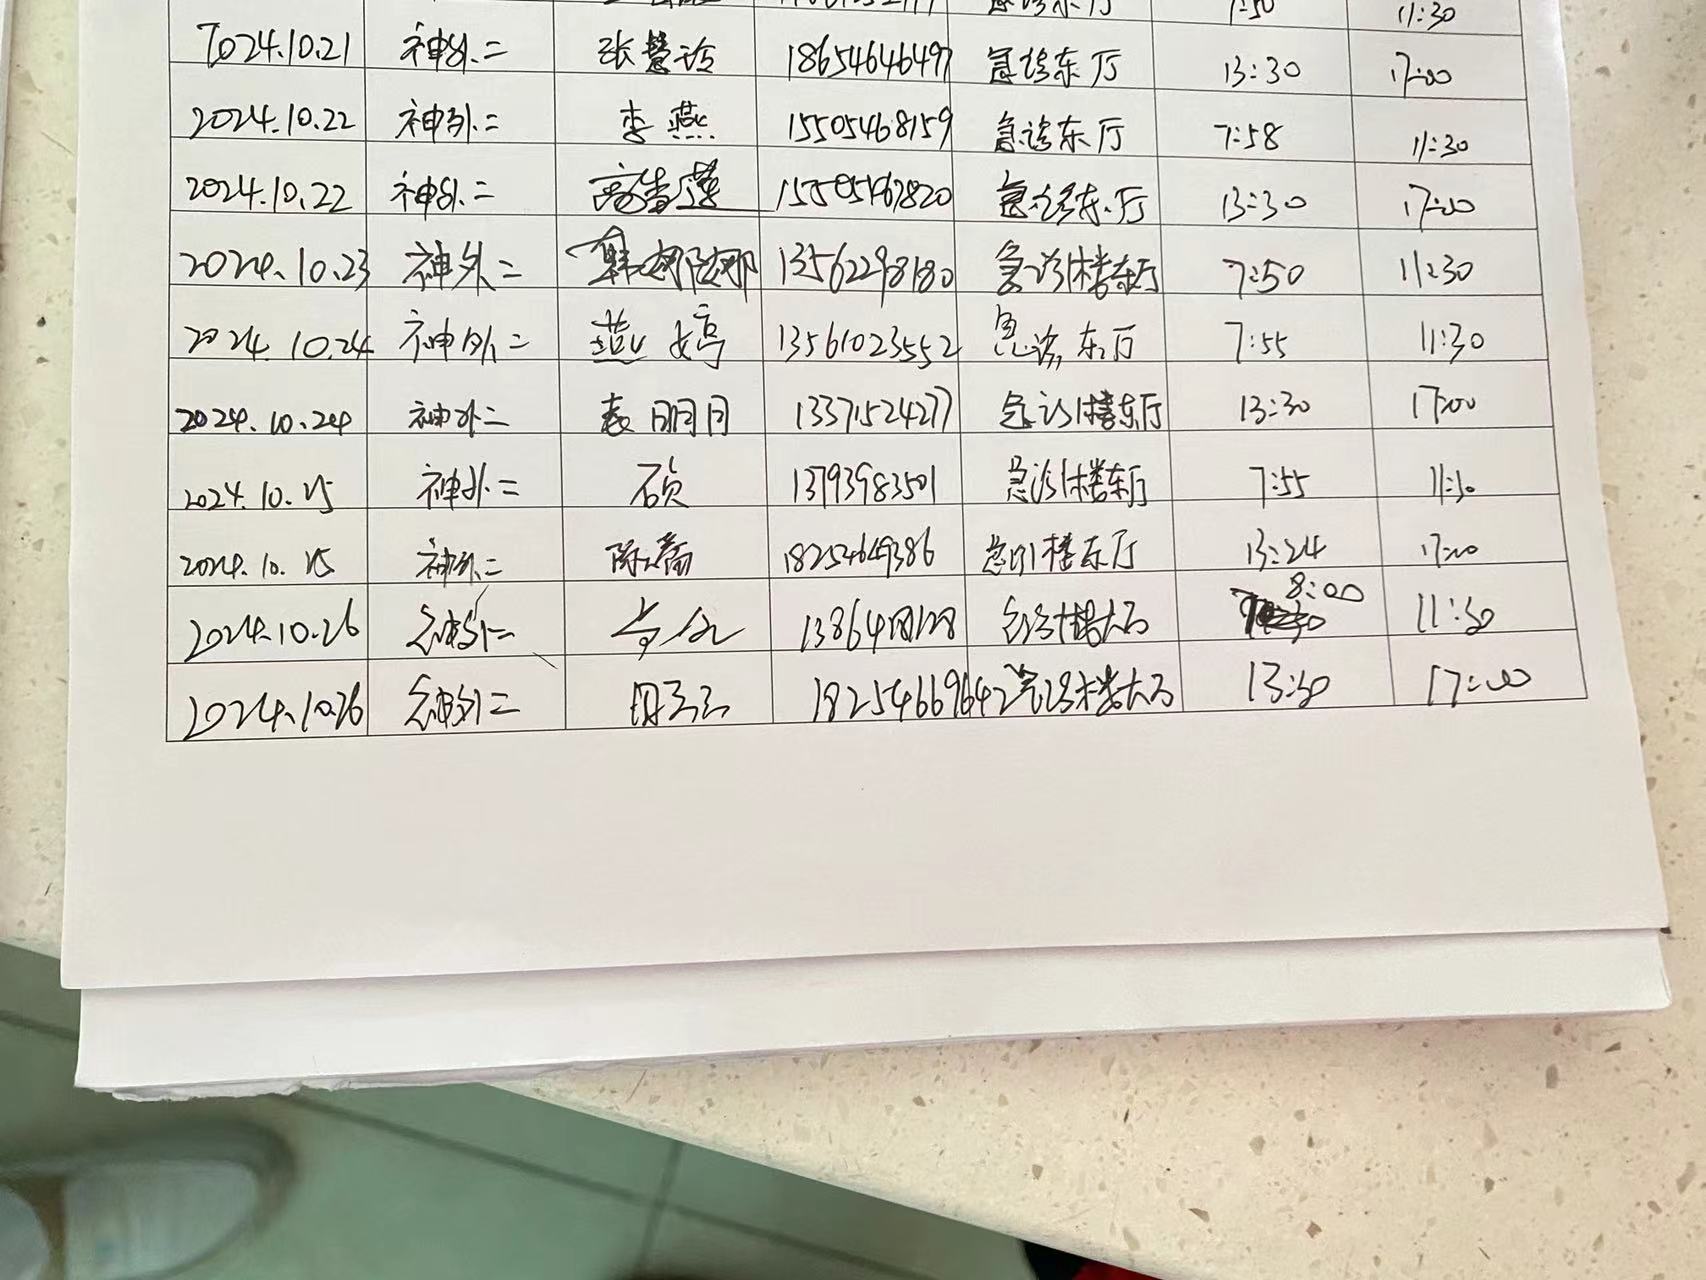 7:50 11:30
2024.10.21 神外二 张慧玲 18654646497 急诊东厅 13:30 17:00
2024.10.22 神外二 李燕 15505468159 急诊东厅 7:58 11:30
2024.10.22 神外二 急诊东厅 13:30 17:00
2024.10.23 神外二 13562298180 急诊1楼东厅 7:50 11:30
2024.10.24 神外二 燕婷 13561023552 急诊东厅 7:55 11:30
2024.10.24 神外二 袁明月 13371524277 急诊1楼东厅 13:30 17:00
2024.10.25 神外二 13793983501 急诊1楼东厅 7:55 11:30
2024.10.25 神外二 18254649386 急诊1楼东厅 13:24 17:00
2024.10.26 神外二 8:00 11:30
2024.10.26 神外二 18254669642 13:30 17:00